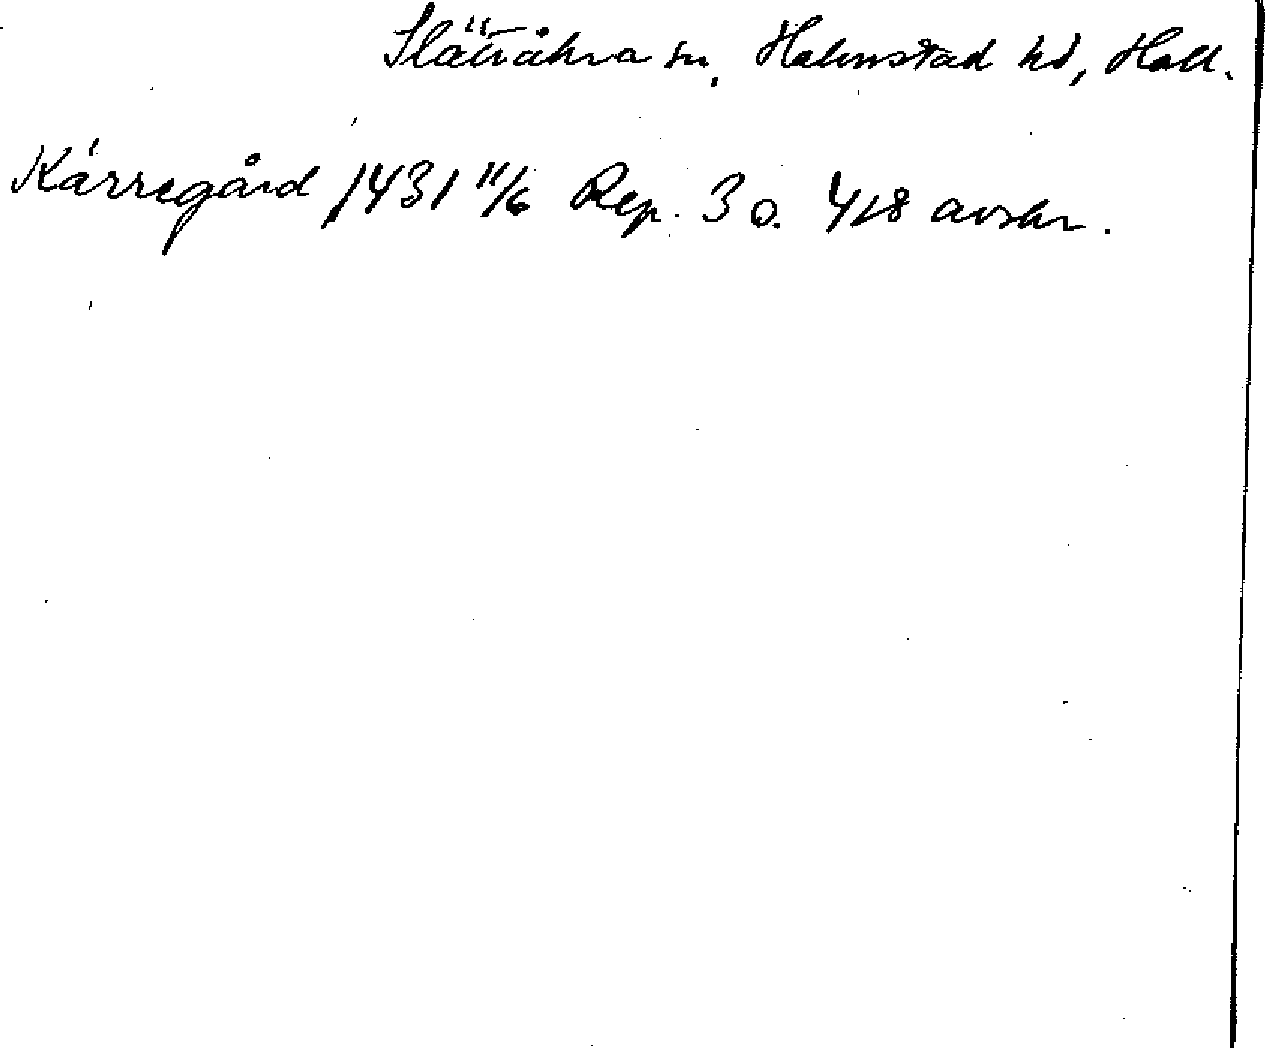 Slättåkra sn, Halmstad hd, Hall.
Kärregård 1431 11/6 Rep. 3 o. 428 avskr.